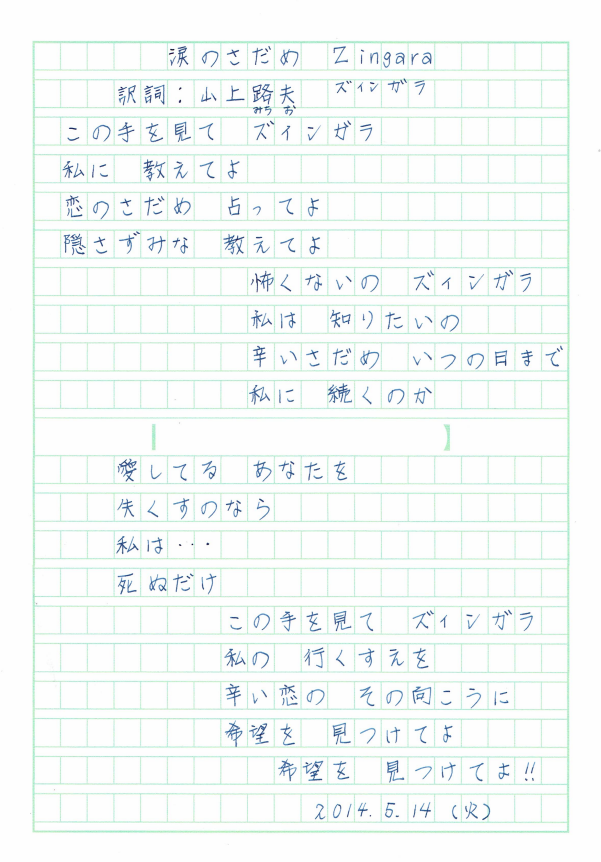 涙のさだめ　Zingara
訳詞：山上路夫　ズィンガラ
みち　お
この手を見て　ズィンガラ
私に　教えてよ
恋のさだめ　占ってよ
隠さずみな　教えてよ
怖くないの　ズィンガラ
私は　知りたいの
辛いさだめ　いつの日まで
私に　続くのか
愛してる　あなたを
失くすのなら
私は・・・
死ぬだけ
この手を見て　ズィンガラ
私の　行くすえを
辛い恋の　その向こうに
希望を　見つけてよ
希望を　見つけてよ!!
2014.5.14（火）